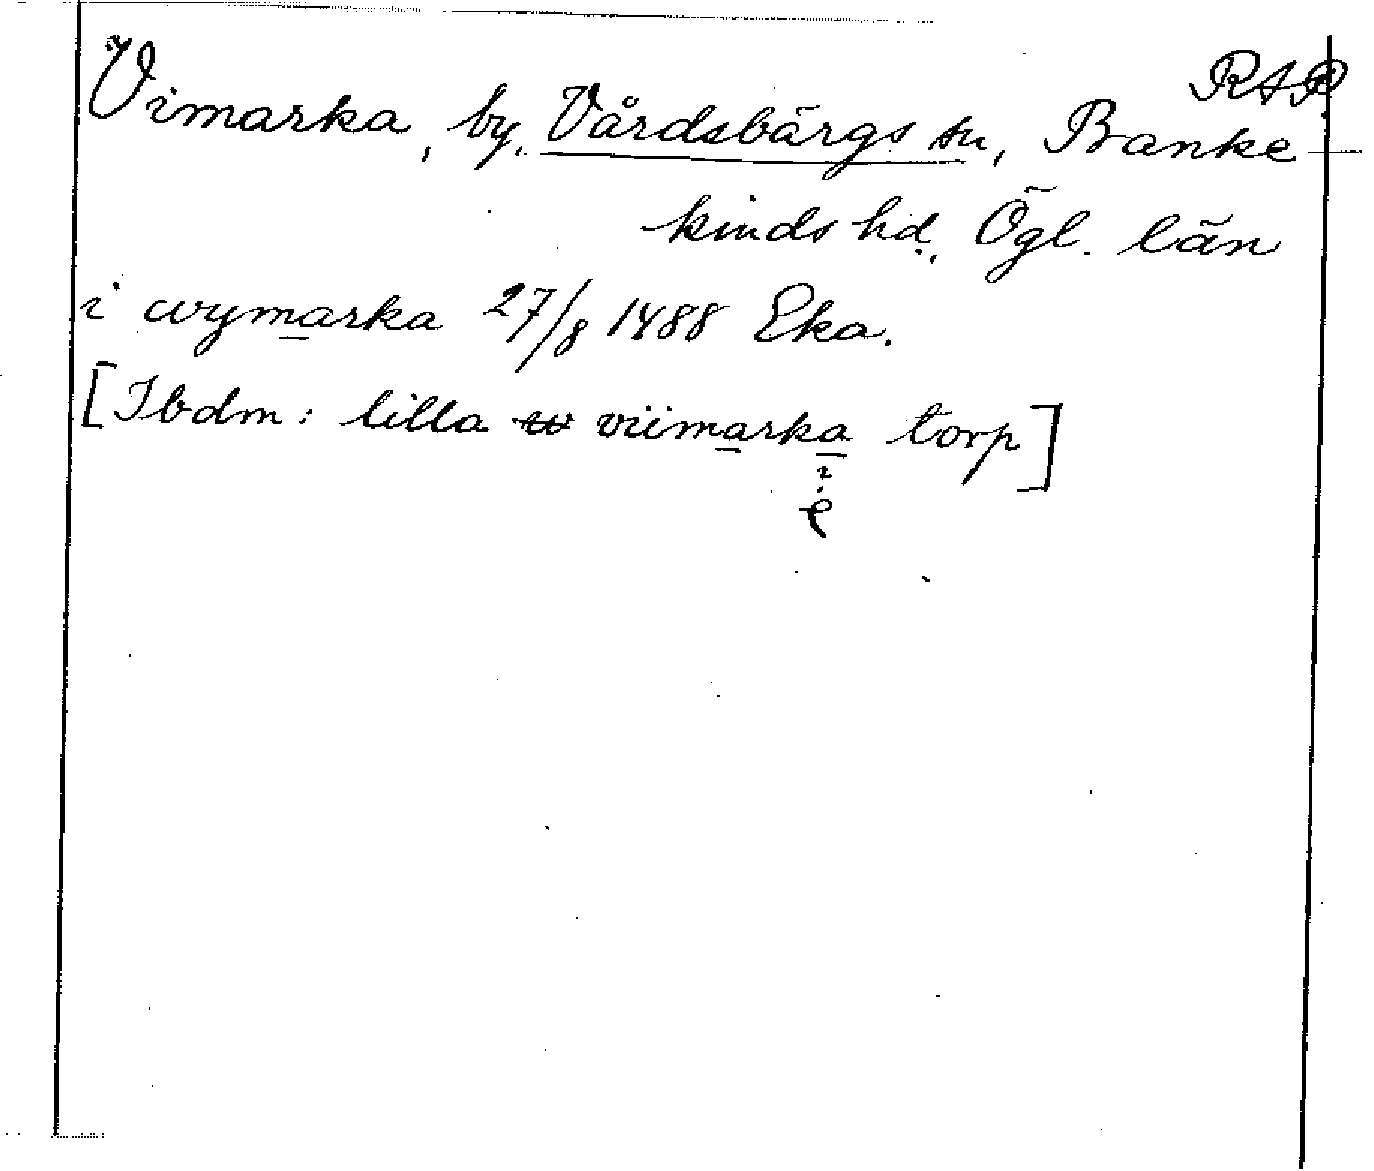 RAP
Vimarka, by, Vårdsbärgs sn, Banke
kinds hd., Ögl. län
i wymarka 27/8 1488 Eka.
[Ibdm: lilla w viimarka torp]